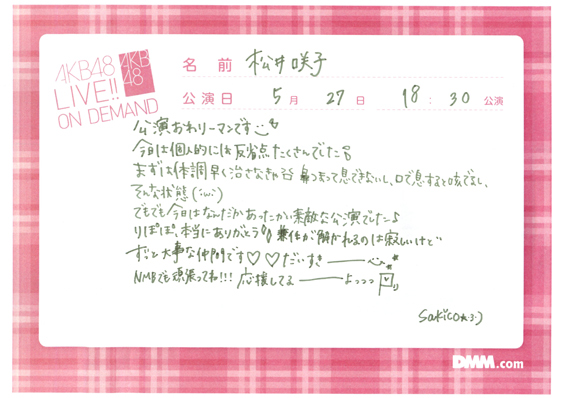 AKB48
LIVE!!
ON DEMAND
AKB
48
名前 松井咲子
公演日 5月 27日 18:30 公演
公演おわりーマンです
今日は個人的には反省点たくさんでした
まずは体調早く治さなきゃ 鼻つまって息できないし、口で息すると咳でるし、
そんな状態(;ω;)
でもでも今日はなんだかあったかい素敵な公演でした♪
りぽぽ、本当にありがとう 兼任が解かれるのは寂しいけど
ずっと大事な仲間です♡♡だいすきーーー
NMBでも頑張ってね!!! 応援してるーーーよっっっ
sakico★3:)
DMM.com